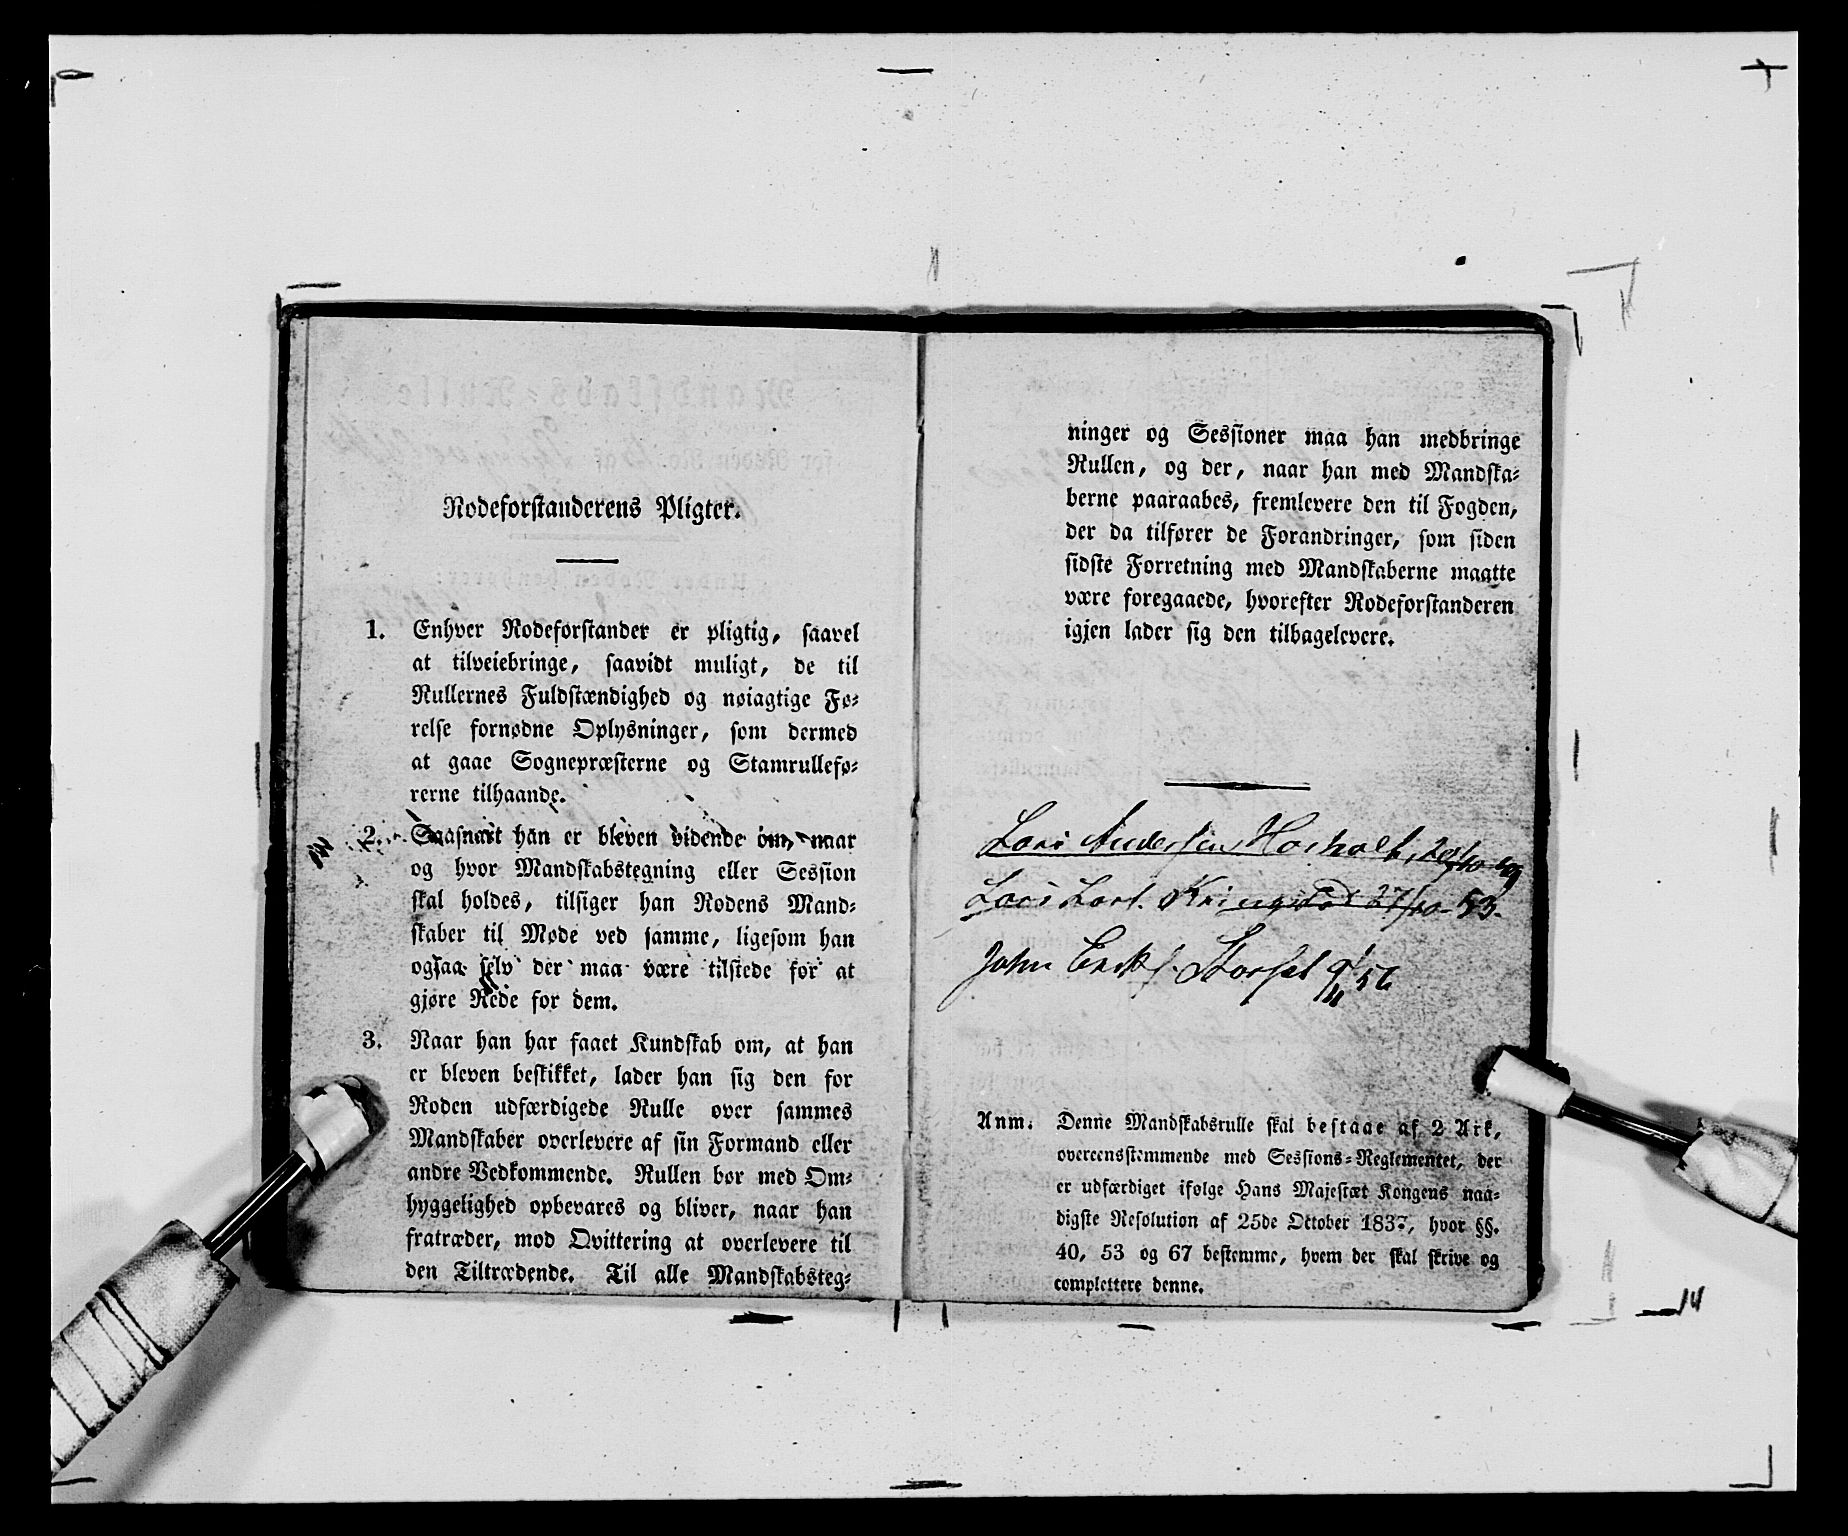 Rodeforstanderens Pligter.
1. Enhver Rodeforstander er pligtig, saavel
at tilveiebringe, saavidt muligt, de til
Rullernes Fuldstændighed og nøiagtige Fø-
relse fornødne Oplysninger, som dermed
at gaae Sognepræsterne og Stamrullefø-
rerne tilhaande.
2. Saasnart han er bleven vidende om, naar
og hvor Mandskabstegning eller Session
skal holdes, tilsiger han Rodens Mand-
skaber til Møde ved samme, ligesom han
ogsaa selv der maa være tilstede for at
gjøre Rede for dem.
3. Naar han har faaet Kundskab om, at han
er bleven beskikket, lader han sig den for
Roden udfærdigede Rulle over sammes
Mandskaber overlevere af sin Formand eller
andre Vedkommende. Rullen bør med Om-
hyggelighed opbevares og bliver, naar han
fratræder, mod Qvittering at overlevere til
den Tiltrædende. Til alle Mandskabsteg-
ninger og Sessioner maa han medbringe
Rullen, og der, naar han med Mandska-
berne paaraabes, fremlevere den til Fogden,
der da tilfører de Forandringer, som siden
sidste Forretning med Mandskaberne maatte
være foregaaede, hvorefter Rodeforstanderen
igjen lader sig den tilbagelevere.
Lars Andersen
Lars Lars. 27/10-53.
John Erks. 9/11 56
Anm. Denne Mandskabsrulle skal bestaae af 2 Ark,
overeensstemmende med Sessions-Reglementet, der
er udfærdiget ifølge Hans Majestæt Kongens naa-
digste Resolution af 25de October 1837, hvor §§.
40, 53 og 67 bestemme, hvem der skal skrive og
complettere denne.